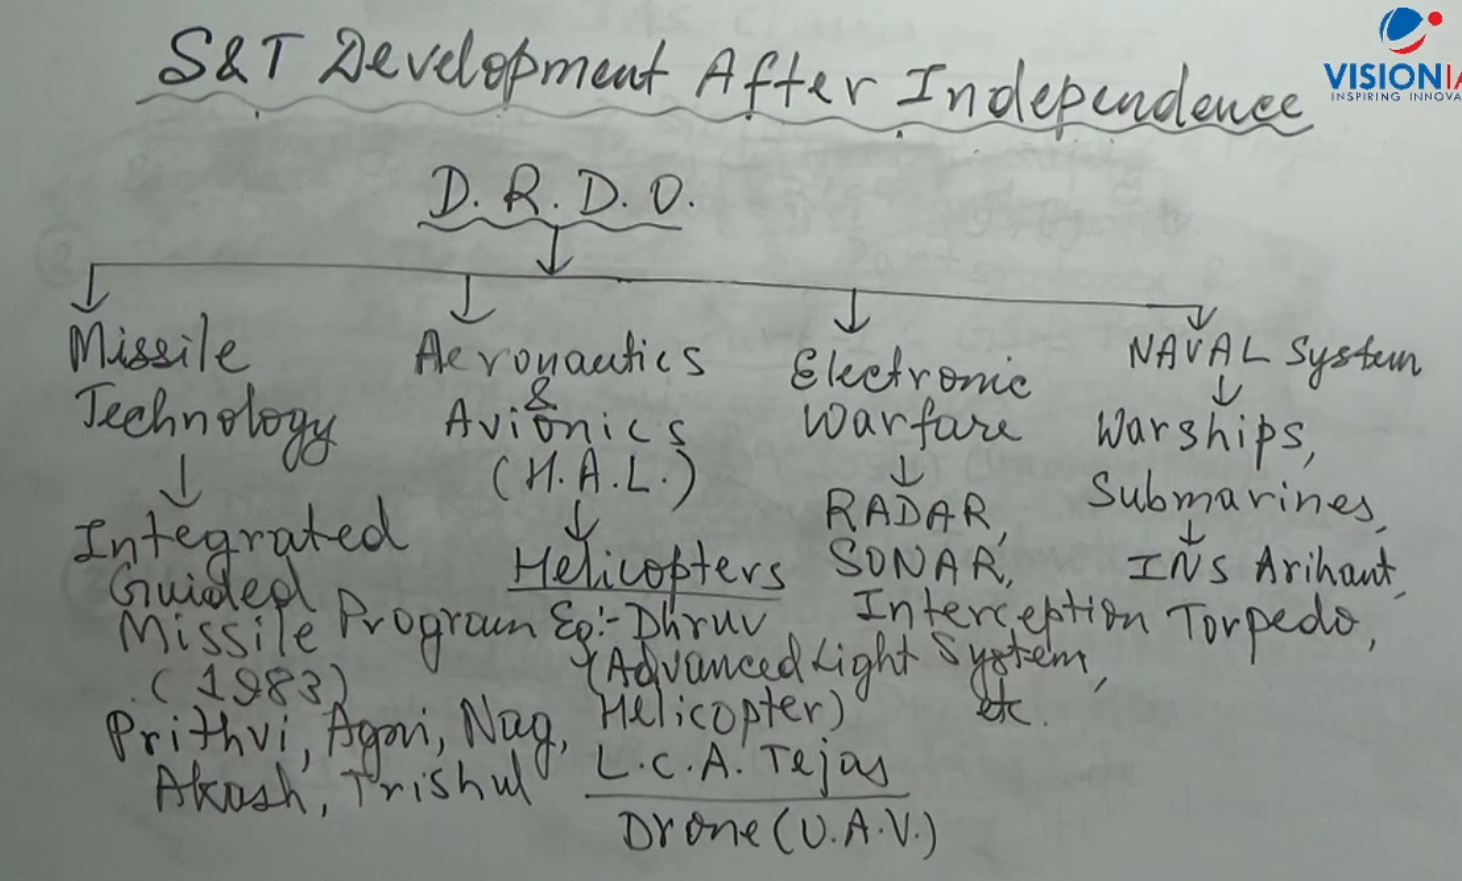 S&T Development After Independence
VISIONIA
INSPIRING INNOVA
D.R.D.O.
Missile
Technology
Integrated
Guided
Missile Program
(1983)
Prithvi, Agni, Nag,
Akash, Trishul
Aeronautics
&
Avionics
(H.A.L.)
Helicopters
Eg:- Dhruv
(Advanced Light
Helicopter)
L.C.A. Tejas
Drone (U.A.V.)
Electronic
Warfare
RADAR,
SONAR,
Interception
System,
etc.
NAVAL System
Warships,
Submarines,
INS Arihant,
Torpedo,